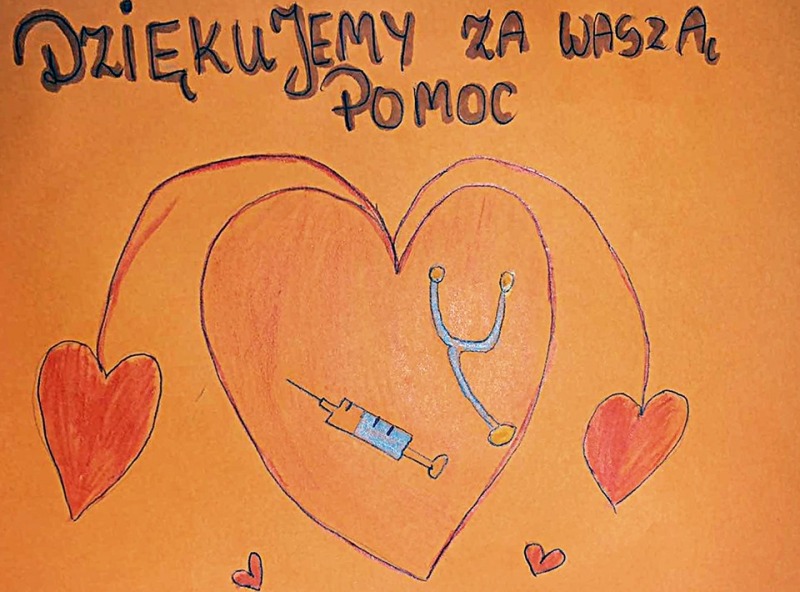 DZIĘKUJEMY ZA WASZĄ
POMOC